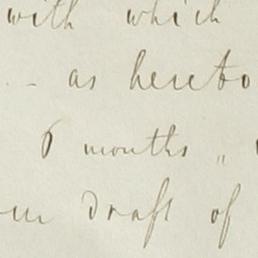 with which
as hereto
6 months "
draft of